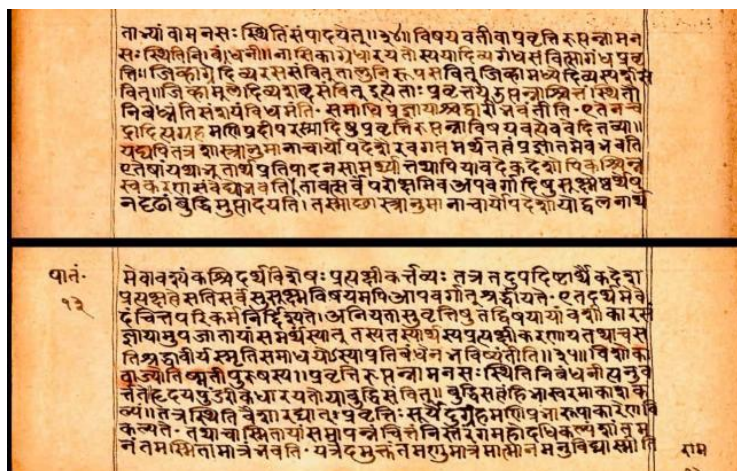 ताभ्यां वा मनसः स्थितिं संपादयेत्॥३४॥ विषयवती वा प्रवृत्तिरुत्पन्ना मन
सः स्थितिनिबंधनी॥ नासिकाग्रे धारयतोस्य या दिव्यगंधसंवित्सा गंधप्रवृ
त्तिः॥ जिव्हाग्रे दिव्यरससंवित् तालुनि रूपसंवित् जिव्हामध्ये दिव्यस्पर्शसं
वित्॥ जिव्हामूले दिव्यशब्दसंवित् इत्येताः प्रवृत्तय उत्पन्नाश्चित्तं स्थितौ
निबध्नंति संशयं विधमंति॰ समाधिप्रज्ञायां च द्वारीभवंतीति॰ एतेन चं
द्रादित्यग्रहमणिप्रदीपरस्मादिषु प्रवृत्तिरुत्पन्ना विषयवत्येव वेदितव्या॥
यद्यपि तत्र शास्त्रानुमानाचार्योपदेशैरवगतमर्थतत्वं प्रज्ञातमेव भवति
एतेषां यथाभूतार्थप्रतिपादनसामर्थ्यात् तथापि यावदेकदेशोपि कश्चिन्न
स्वकरणसंवेद्यो भवति। तावत्सर्वं परोक्षमिव अपवर्गादिषु सूक्ष्मेष्वर्थेषु
न दृढां बुद्धिमुत्पादयति। तस्माछास्त्रानुमानाचार्योपदेशोपोद्बलनार्थ
मेवावश्यं कश्चिदर्थविशेषः प्रत्यक्षीकर्त्तव्यः तत्र तदुपदिष्टार्थैकदेश
पातं॰
प्रत्यक्षत्वे सति सर्वं सुसूक्ष्मविषयमपि आपवर्गात् श्रद्धीयते॰ एतदर्थमेवे
१३
दं चित्तपरिकर्म निर्दिश्यते। अनियतासु वृत्तिषु तद्विषयायां वशीकारसं
ज्ञायामुपजातायां समर्थं स्यात् तस्य तस्यार्थस्य प्रत्यक्षीकरणाय तथा च स
ति श्रद्धावीर्यस्मृतिसमाधयोऽस्याप्रतिबंधेन भविष्यंतीति॥३५॥ विशोका
वा ज्योतिष्मती पुरुषस्य॥ प्रवृत्तिरुत्पन्ना मनसः स्थितिनिबंधनीत्यनुव
र्त्तते हृदयपुंडरीके धारयतो या बुद्धिसंवित्॥ बुद्धिसत्वं हि भास्वरमाकाशक
ल्पं॥ तत्र स्थितिवैशारद्यात् प्रवृत्तिः सूर्येंदुग्रहमणिप्रभारूपाकारेण वि
कल्पते॰ तथा चास्मितायां समापन्नं चित्तं निस्तरंगमहोदधिकल्पं शांतम
नंतमस्मितामात्रं भवति॰ यत्रेदमुक्तं तमणुमात्रमात्मानमनुविद्यास्मीति
राम